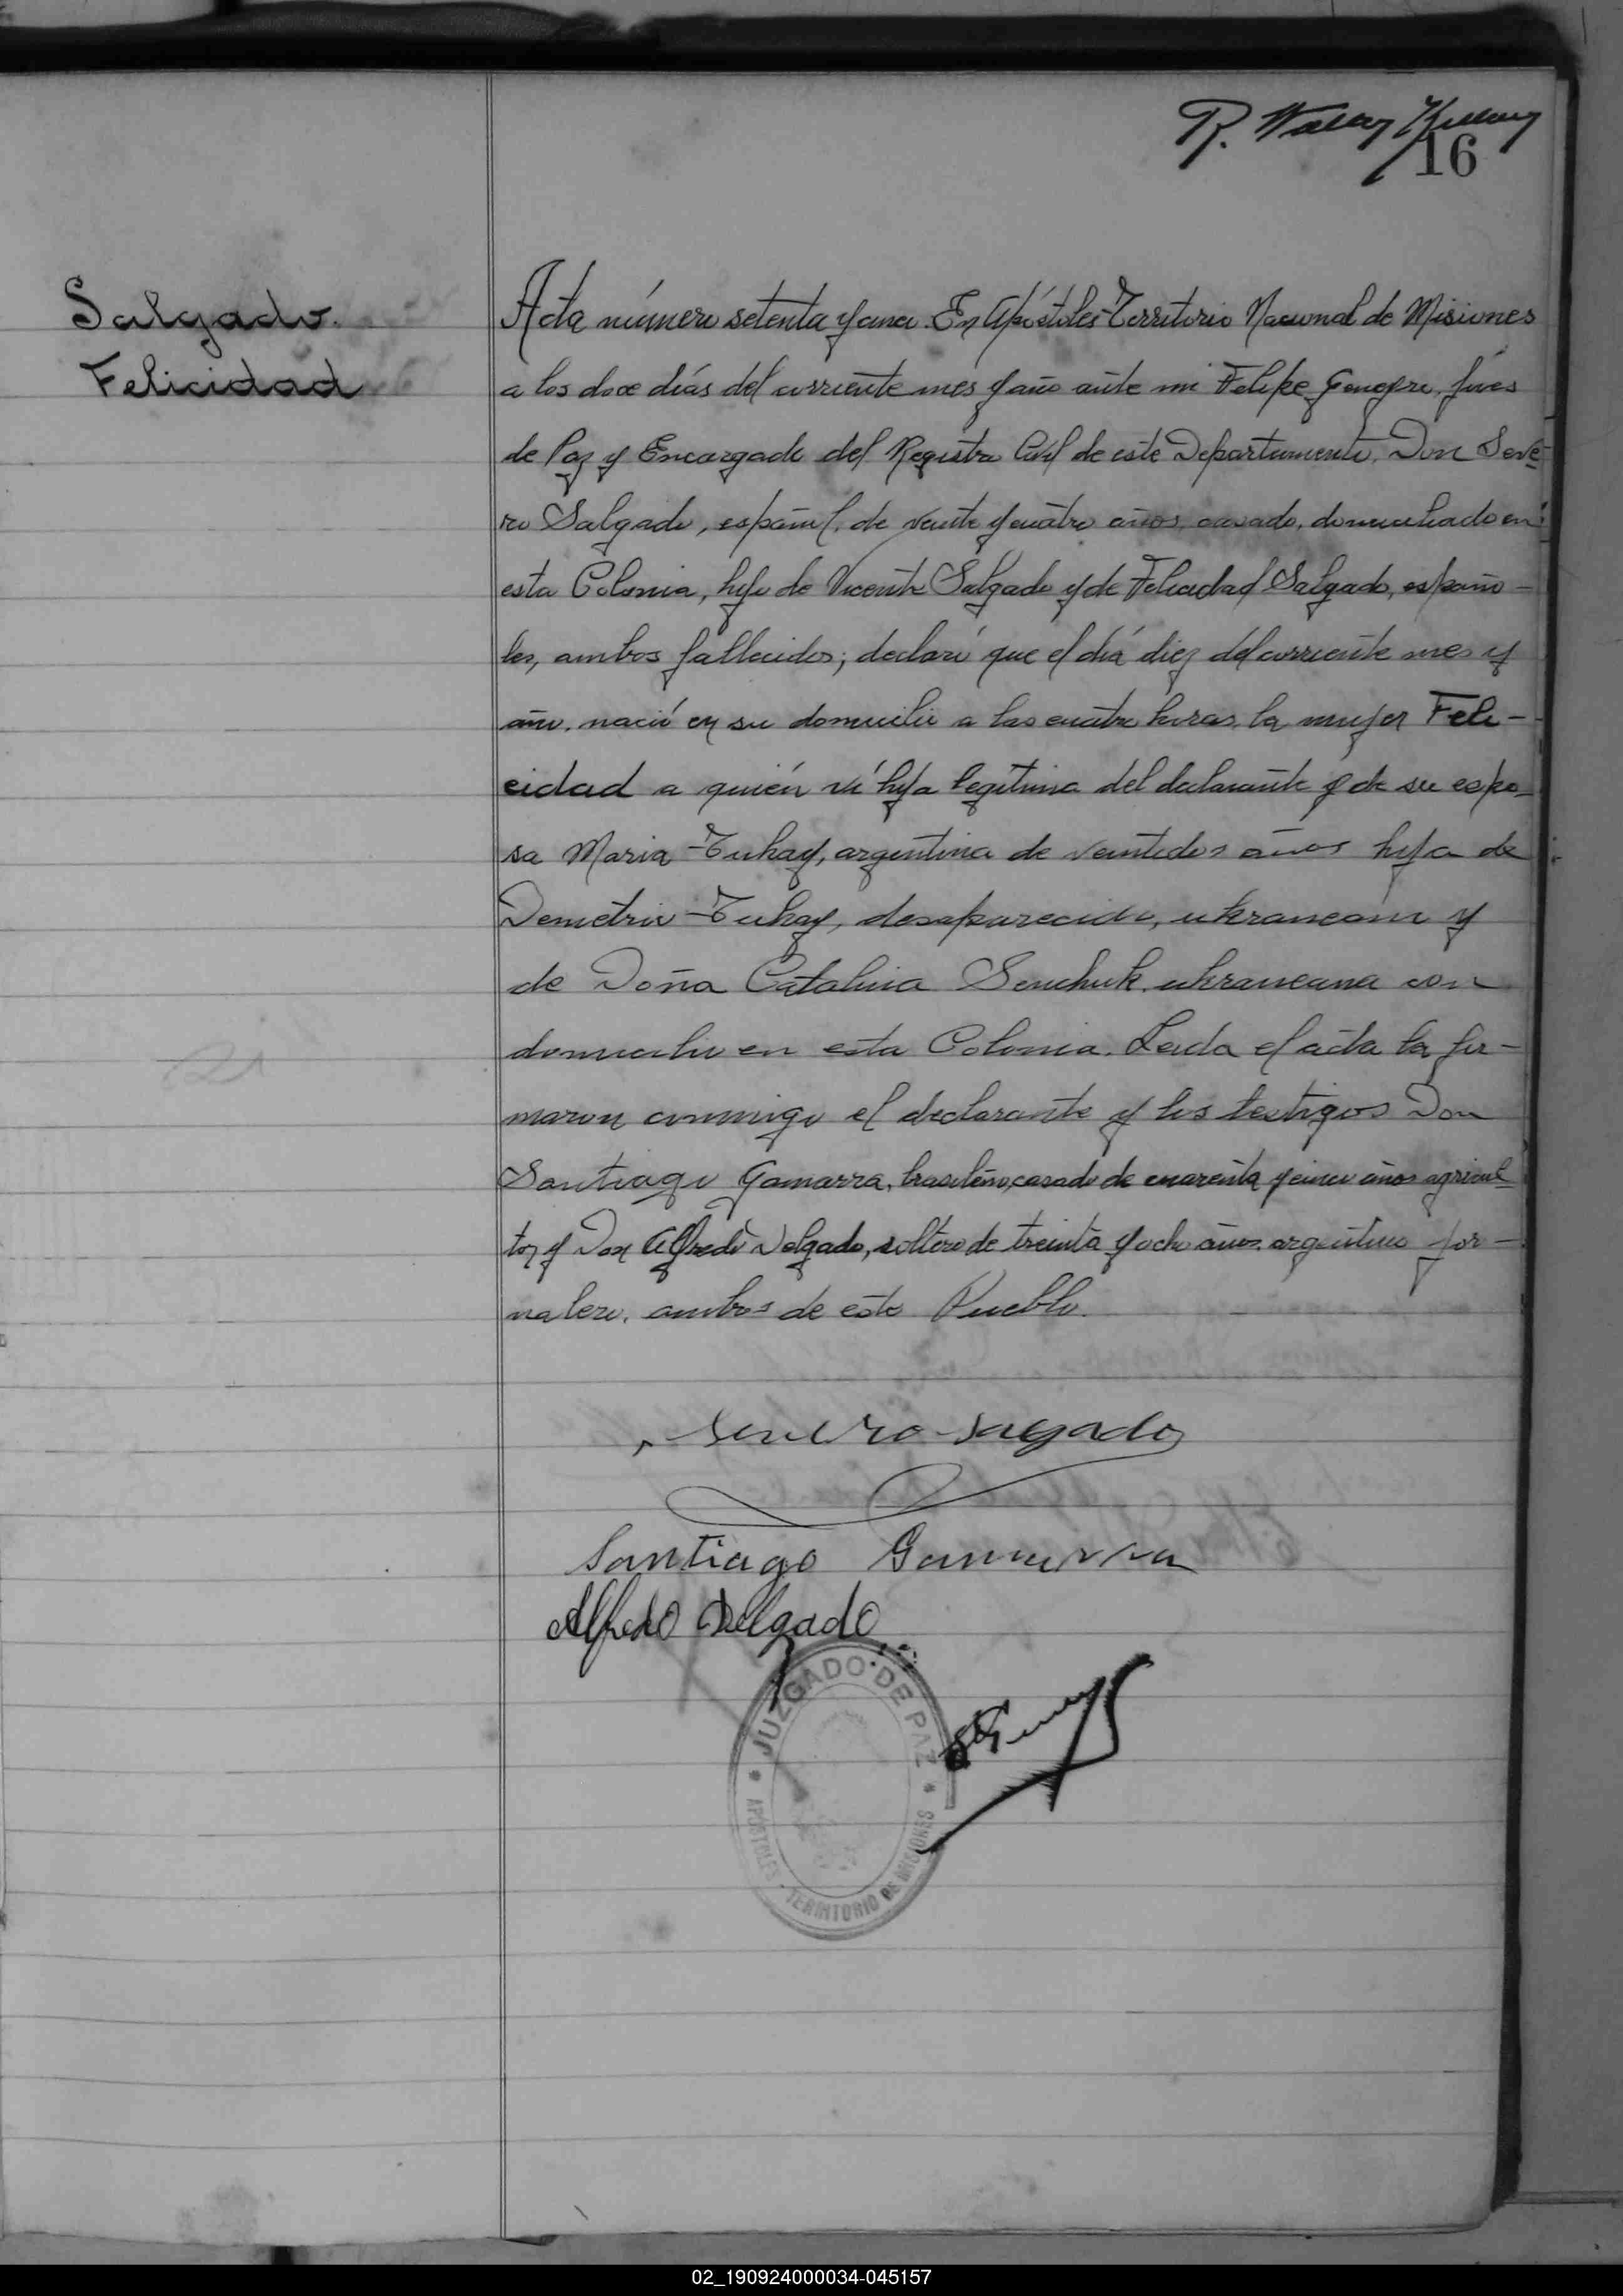 R.
16
Salgado.
Felicidad
Acta número setenta y una. En Apóstoles Territorio Nacional de Misiones
a los doce días del corriente mes y año ante mi Felipe Jués
de Paz y Encargado del Registro Civil de este Departamento, Don Seve-
ro Salgado, español, de veinte y cuatro años, casado, domiciliado en
esta Colonia, hijo de Vicente Salgado y de Felicidad Salgado, españo-
les, ambos fallecidos; declaró que el día diez del corriente mes y
año, nació en su domicilio a las cuatro horas, la mujer Feli-
cidad a quién ví hija legítima del declarante y de su espo-
sa Maria Tukay, argentina de veintidos años hija de
Demetrio Tukay, desaparecido, ukraneano y
de Doña Catalina Senchuk, ukraneana con
domicilio en esta Colonia. Leida el acta la fir-
maron conmigo el declarante y los testigos Don
Santiago Gamarra, brasileño, casado de cuarenta y cinco años agricul-
tor y Don Alfredo Delgado, soltero de treinta y ocho años, argentino jor-
nalero, ambos de este Pueblo.
Severo Salgado
Santiago Gamarra
Alfredo Delgado
JUZGADO DE PAZ
APOSTOLES - TERRITORIO DE MISIONES
02_190924000034-045157